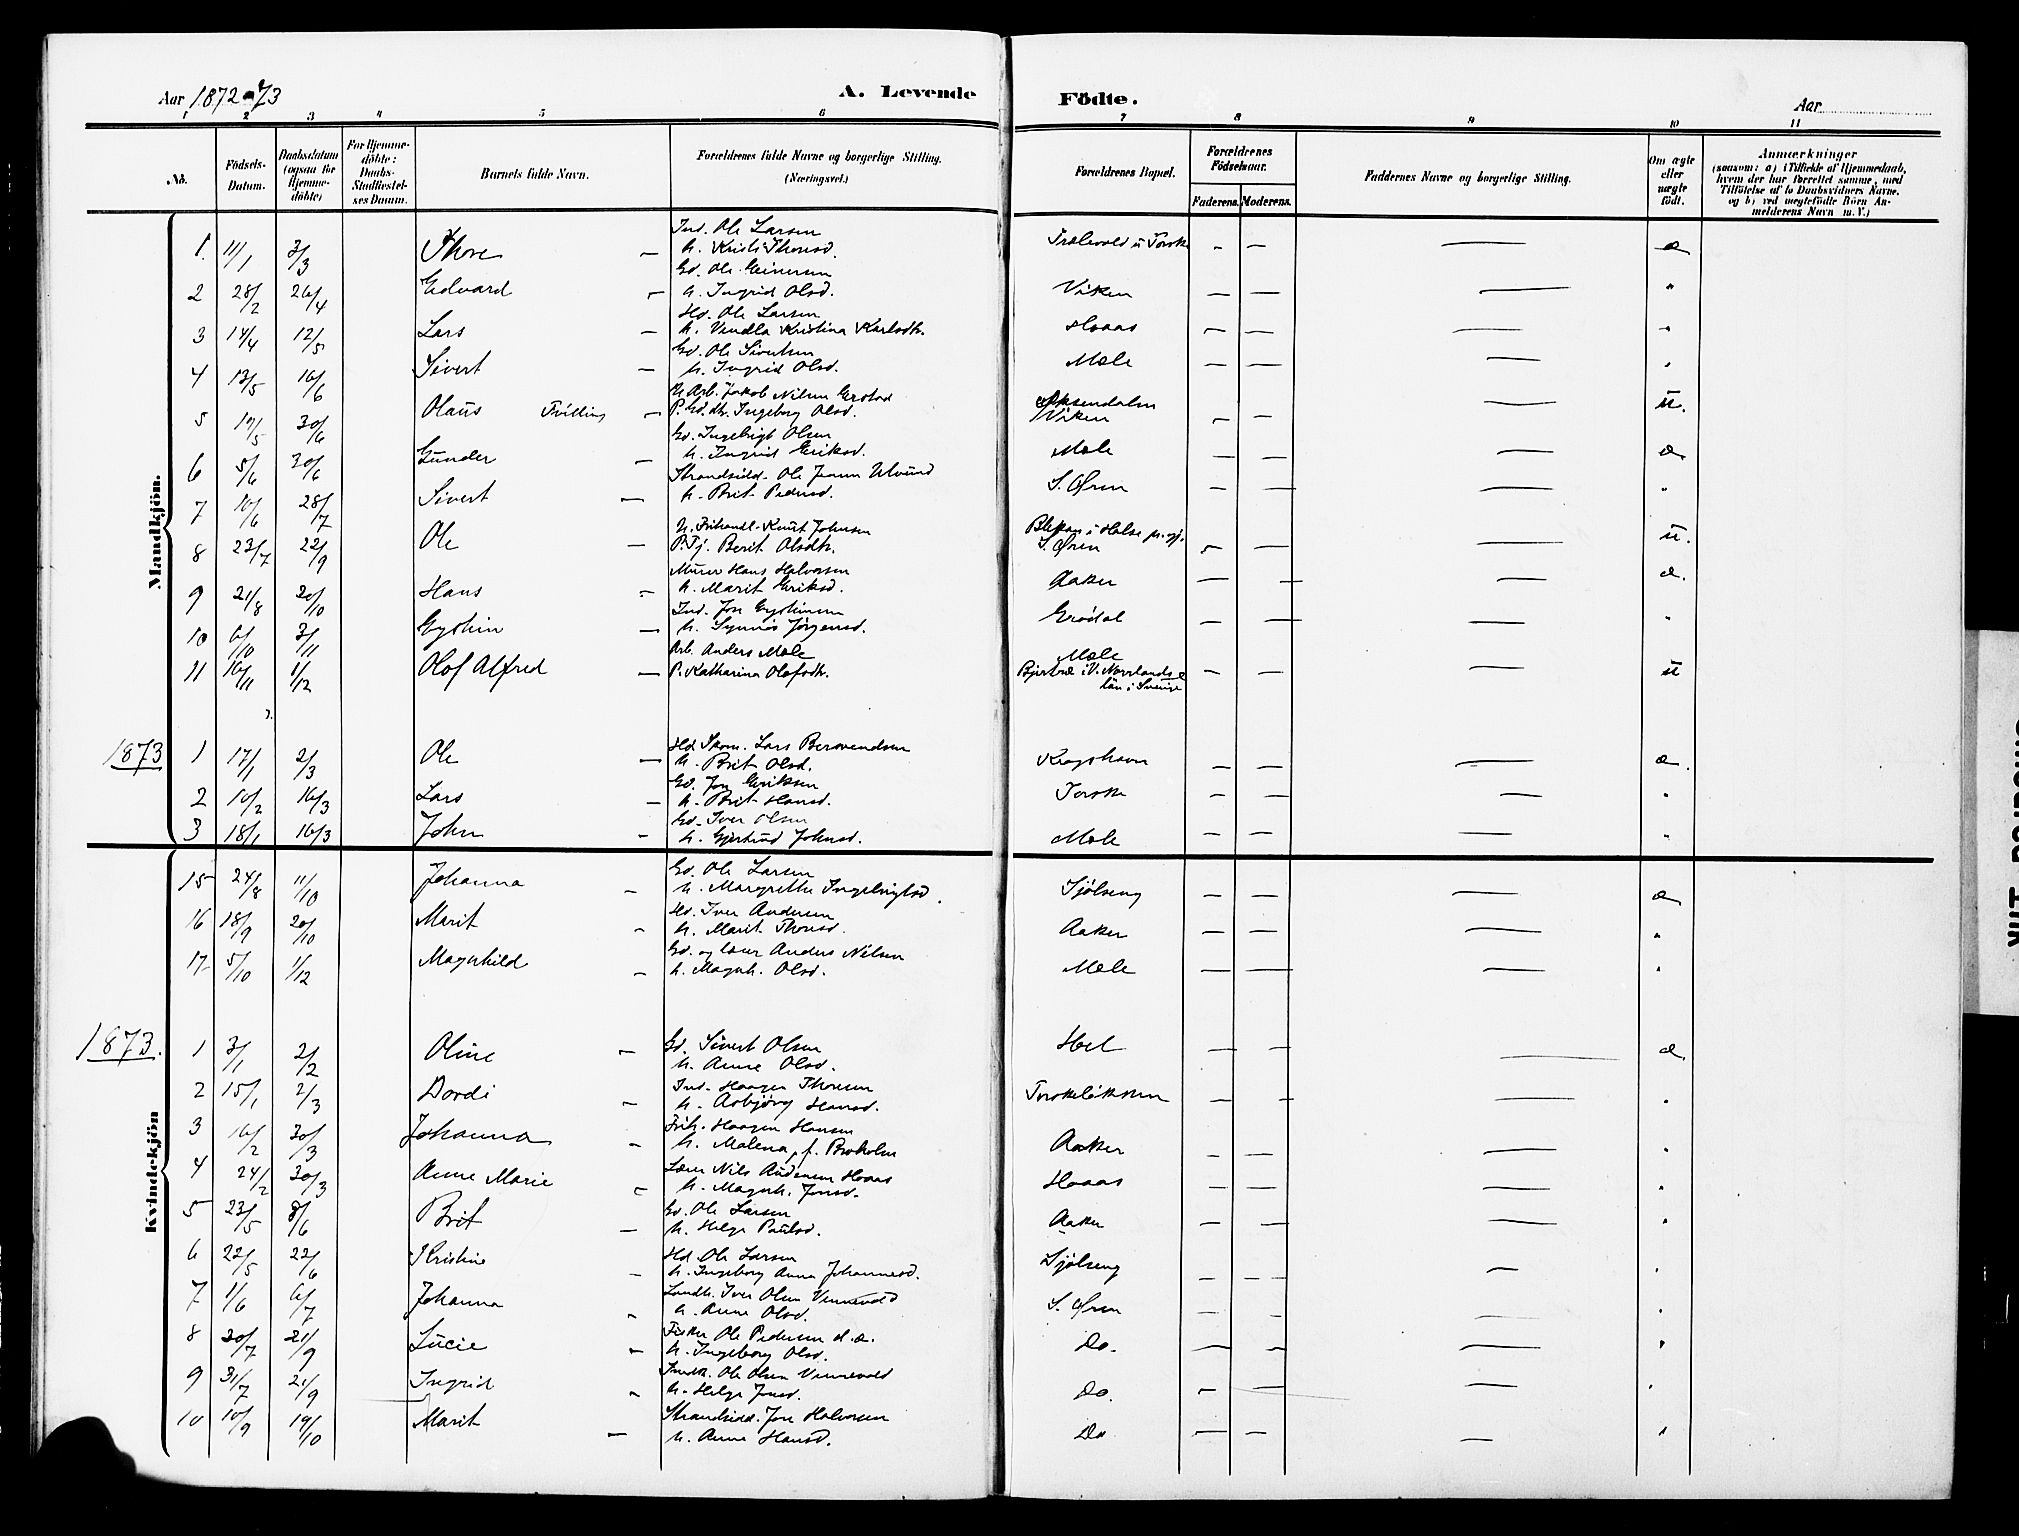 Aar 1872-73
A. Levende
Födte.
Aar
1 2 3 4 5 6 7 8 9 10 11
No.
Födsels-Datum.
Daabsdatum (ogsaa for Hjemmedöbte)
For Hjemmedöbte: Daabs-Stadfæstelses Datum.
Barnets fulde Navn.
Forældrenes fulde Navne og borgerlige Stilling. (Næringsvei.)
Forældrenes Bopæl.
Forældrenes Födselsaar.
Faderens. Moderens.
Faddernes Navne og borgerlige Stilling.
Om ægte eller uægte födt.
Anmærkninger (saasom: a) i Tilfælde af Hjemmedaab, hvem der har forrettet samme, med Tilföielse af to Daabsvidners Navne, og b) ved uægtefödte Börn Anmelderens Navn m. V.)
Mandkjön.
1. 11/1 3/3 Thore — Ind. Ole Larsen
h. Kristi Thoresd. — — — æ
2 28/2 26/4 Edvard — Gd. Ole Einersen
h. Ingrid Olsd. Viken — — — "
3 14/4 12/5 Lars — Hd. Ole Larsen
h. Vendla Kristina Karlsdtr. Hoaas — — — "
4 13/5 16/6 Sivert — Gd. Ole Sivertsen
h. Ingrid Olsd. Mæle — — — "
5 19/5 30/6 Olaus Tvilling — U. Arb. Jakob Nilsen
P. Gd.dtr. Ingeborg Olsd. Øksendalen
Viken — — — u.
6 5/6 30/6 Gunder — Gd. Ingebrigt Olsen
h. Ingrid Eriksd. Mæle — — — æ
7 10/6 28/7 Sivert — Strandsidd. Ole Jonsen Ulvund
h. Brit Pedersd. S. Øren — — — "
8 23/7 22/9 Ole — U. Frihandl. Knut Johnsen
P. Tj. Berit Olsdtr. i Halse pr.gj.
S. Øren — — — u.
9 21/8 20/10 Hans — Murer Hans Halvorsen
h. Marit Eriksd. Aaker — — — æ.
10 6/10 3/11 Eystein — Ind. Jon Eysteinsen
h. Synnøv Jørgensd. Grødal — — — "
11 16/11 1/12 Olof Alfred — Arb. Anders Mæle
P. Katharina Olofsdtr. Mæle
i V. Norrlands
län i Sverige — — — u
1873 1 17/1 2/3 Ole — Hd. Skom. Lars Bersvendsen
h. Brit Olsd. — — — æ.
2 10/2 16/3 Lars — Gd. Jon Eriksen
h. Brit Hansd. Torske — — — "
3 18/1 16/3 John — Gd. Iver Olsen
h. Gjertrud Johnsd. Mæle — — — "
Kvindekjön
15 24/8 11/10 Johanna — Gd. Ole Larsen
h. Margrethe Ingebrigtsd. Sjølseng — — — æ
16 18/9 20/10 Marit — Hd. Iver Andersen
h. Marit Thoresd. Aaker — — — "
17 5/10 1/12 Magnhild — Gd. og lærer Anders Nilsen
h. Magnh. Olsd. Mæle — — — "
1873. 1 3/1 2/2 Oline — Gd. Sivert Olsen
h. Anne Olsd. Hol — — — æ
2 15/1 2/3 Dordi — Ind. Haagen Thoresen
h. Asbjørg Hansd. Torskeløkken — — — "
3 16/2 30/3 Johanna — Frih. Haagen Hansen
h. Malena, f. Broholm Aaker — — — "
4 24/2 30/3 Anne Marie — Lærer Nils Andersen Hoaas
h. Magnh. Jonsd. Hoaas — — — "
5 23/5 8/6 Brit — Gd. Ole Larsen
h. Helga Paulsd. Aaker — — — "
6 22/5 22/6 Kristine — Hd. Ole Larsen
h. Ingeborg Anna Johannesd. Sjølseng — — — "
7 1/6 6/7 Johanna — Landh. Iver Olsen Vennevold
h. Anne Olsd. S. Øren — — — "
8 20/7 21/9 Lucie — Fisker Ole Pedersen d. æ.
h. Ingeborg Olsd. Do. — — — "
9 31/7 21/9 Ingrid — Ole Olsen Vennevold
h. Helga Jonsd. Do. — — — "
10 10/9 19/10 Marit — Strandsidd. Jon Halvorsen
h. Anne Hansd. Do — — — "